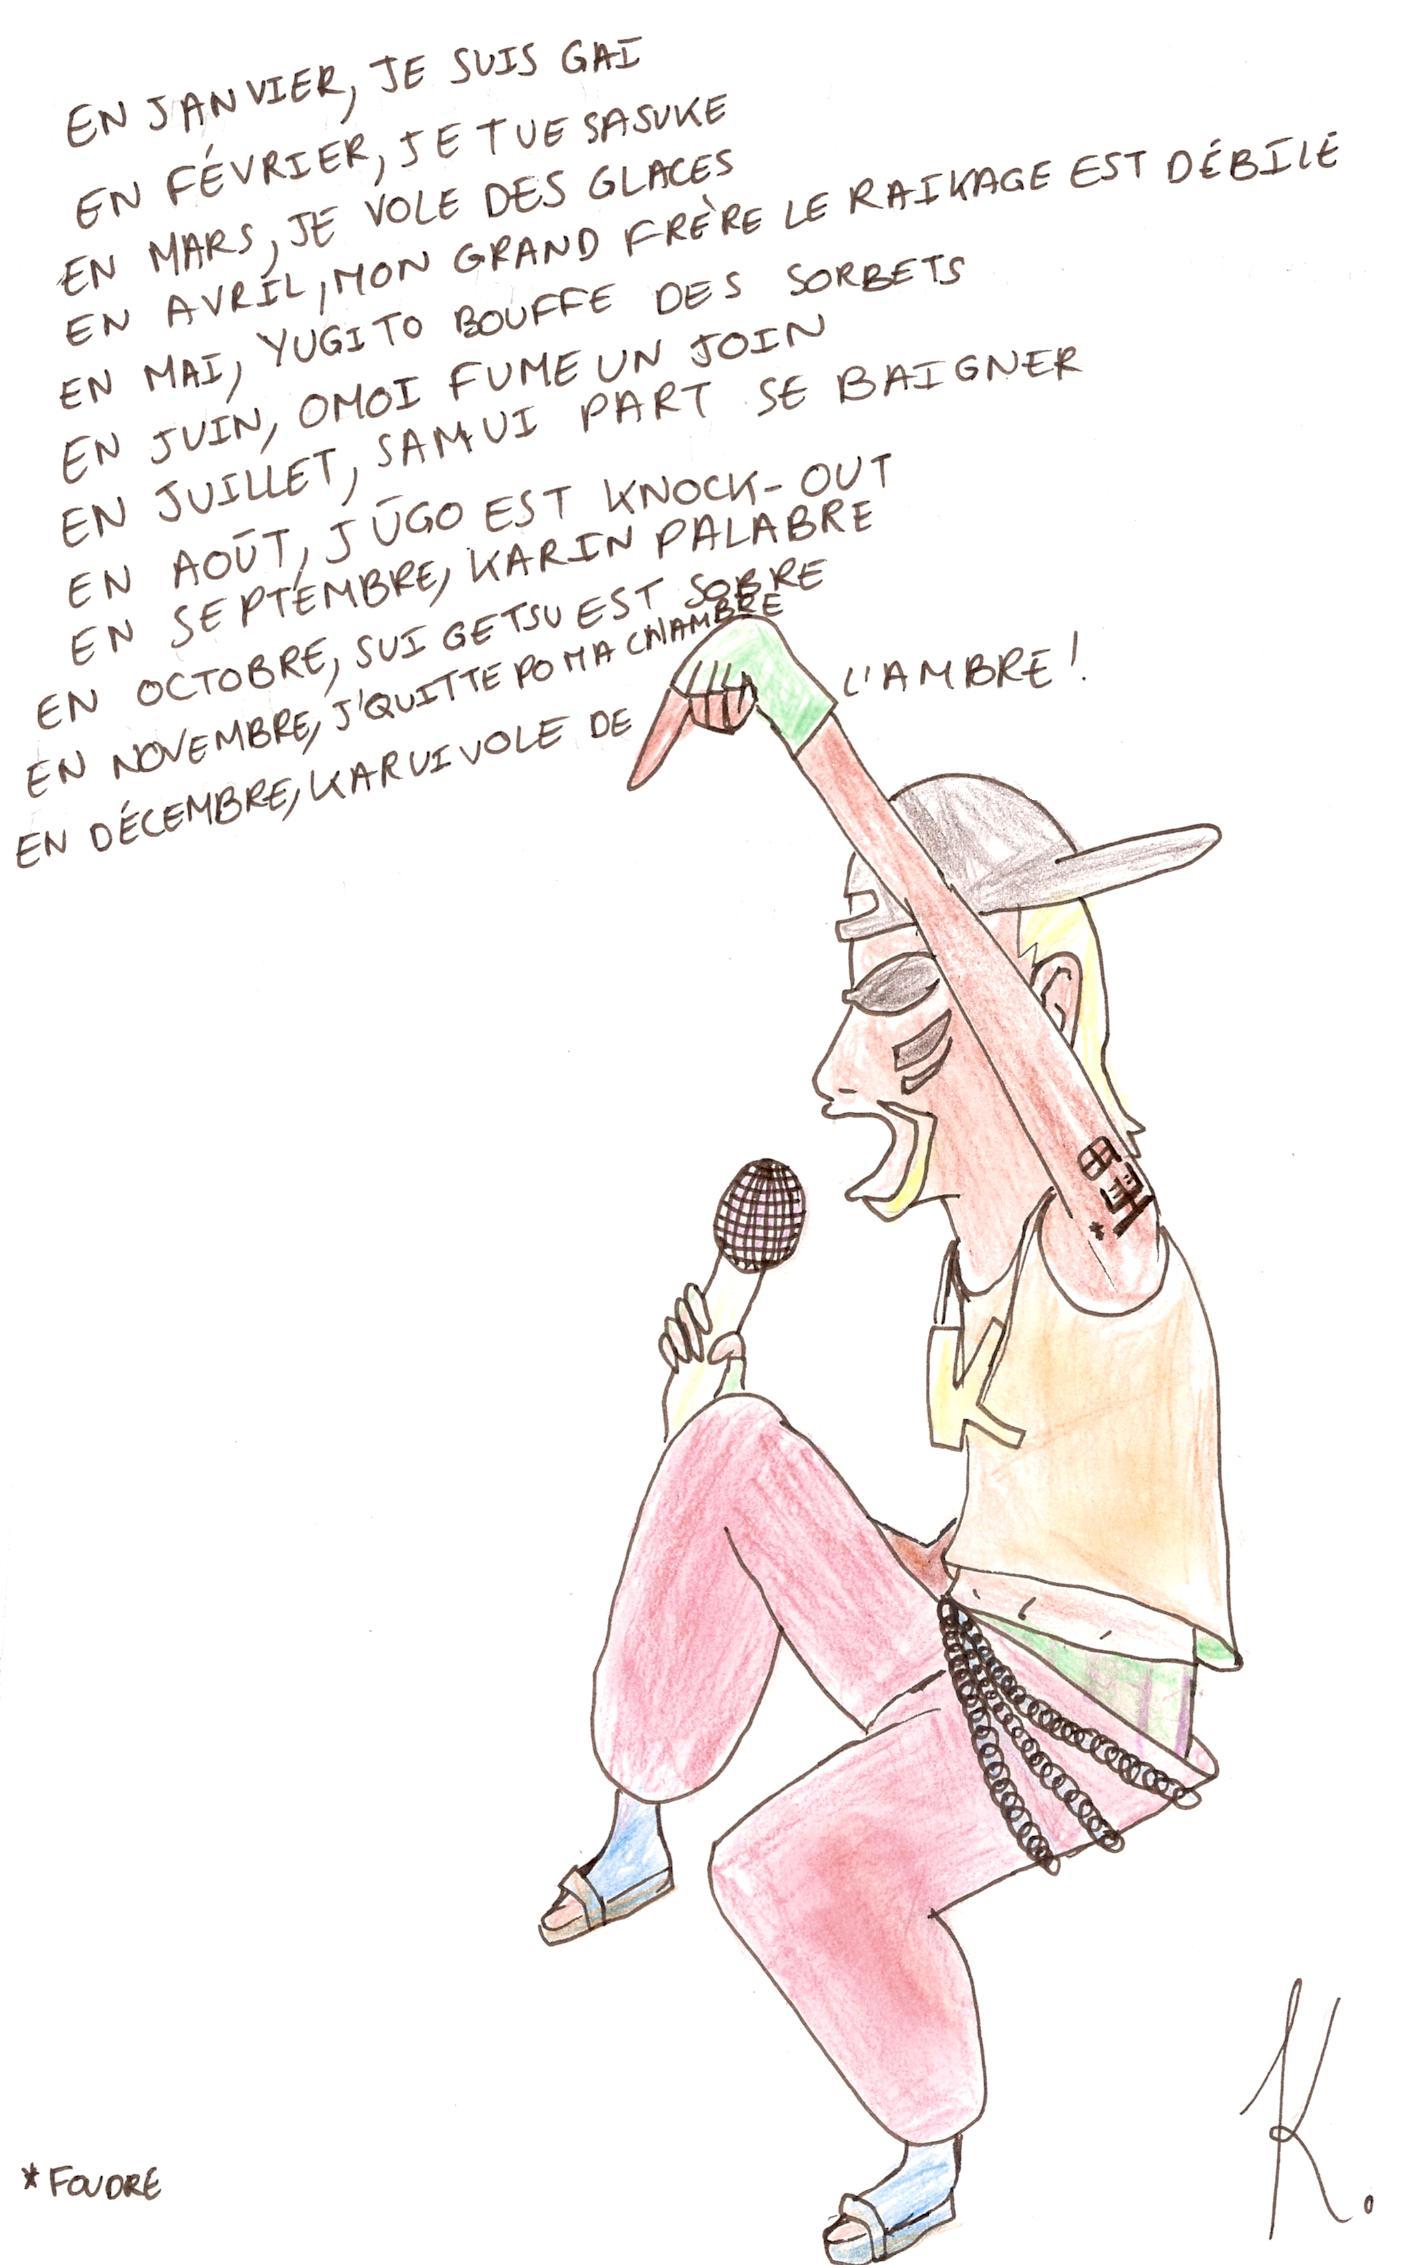 EN JANVIER, JE SUIS GAI
EN FÉVRIER, JE TUE SASUKE
EN MARS, JE VOLE DES GLACES
EN AVRIL, MON GRAND FRÈRE LE RAIKAGE EST DÉBILE
EN MAI, YUGITO BOUFFE DES SORBETS
EN JUIN, OMOI FUME UN JOIN
EN JUILLET, SAMUI PART SE BAIGNER
EN AOÛT, JŪGO EST KNOCK-OUT
EN SEPTEMBRE, KARIN PALABRE
EN OCTOBRE, SUIGETSU EST SOBRE
EN NOVEMBRE, J'QUITTE PO MA CHAMBRE
EN DÉCEMBRE, KARUI VOLE DE L'AMBRE!
*
*FOUDRE
K.